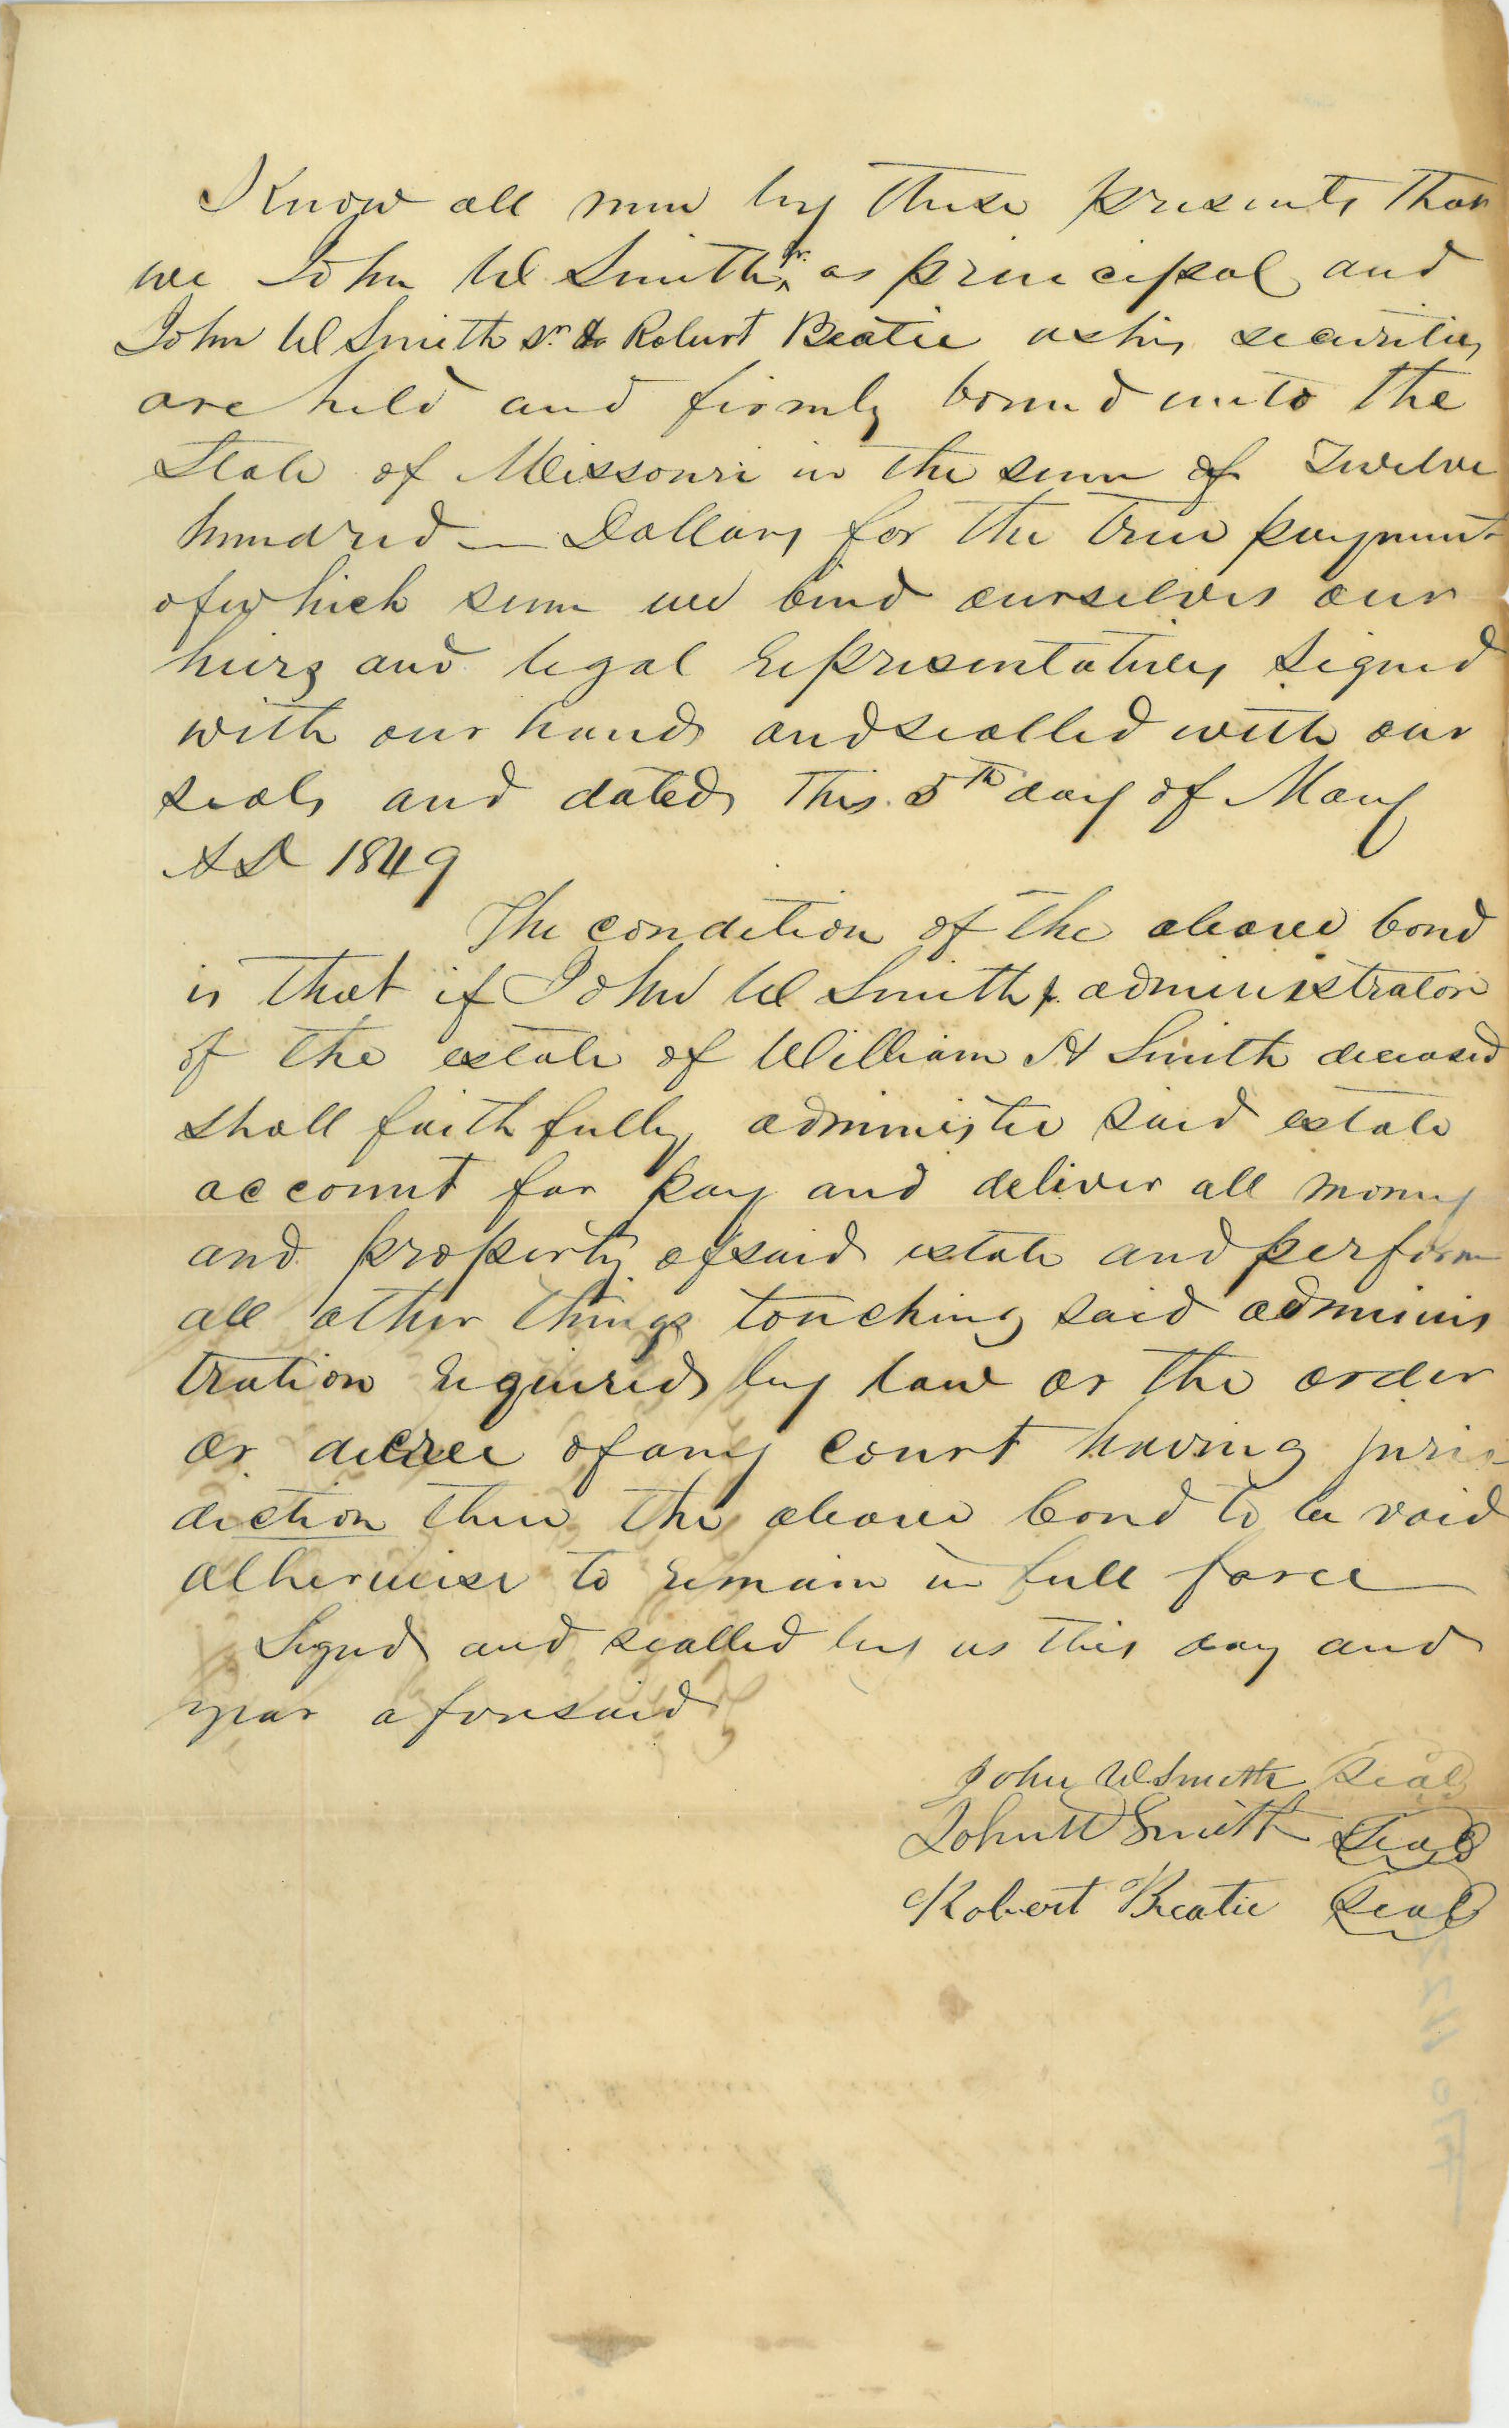 Know all men by these presents that
we John W Smith Jr. as principal and
John W Smith Sr & Robert Beatie as his securities
are held and firmly bound unto the
State of Missouri in the sum of Twelve
hundred — Dollars for the true payment
of which sum we bind ourselves our
heirs and legal representatives signed
with our hands and sealled with our
seals and dated this 5th day of May
AD 1849
The condition of the above bond
is that if John W Smith Jr. administrator
of the estate of William H Smith deceased
shall faithfully administer said estate
account for pay and deliver all money
and property of said estate and perform
all other things touching said adminis
tration required by law or the order
or decree of any court having juris
diction then the above bond to be void
otherwise to remain in full force
Signed and sealled by us this day and
year aforesaid
John W Smith Seal
John W Smith Seal
Robert Beatie Seal